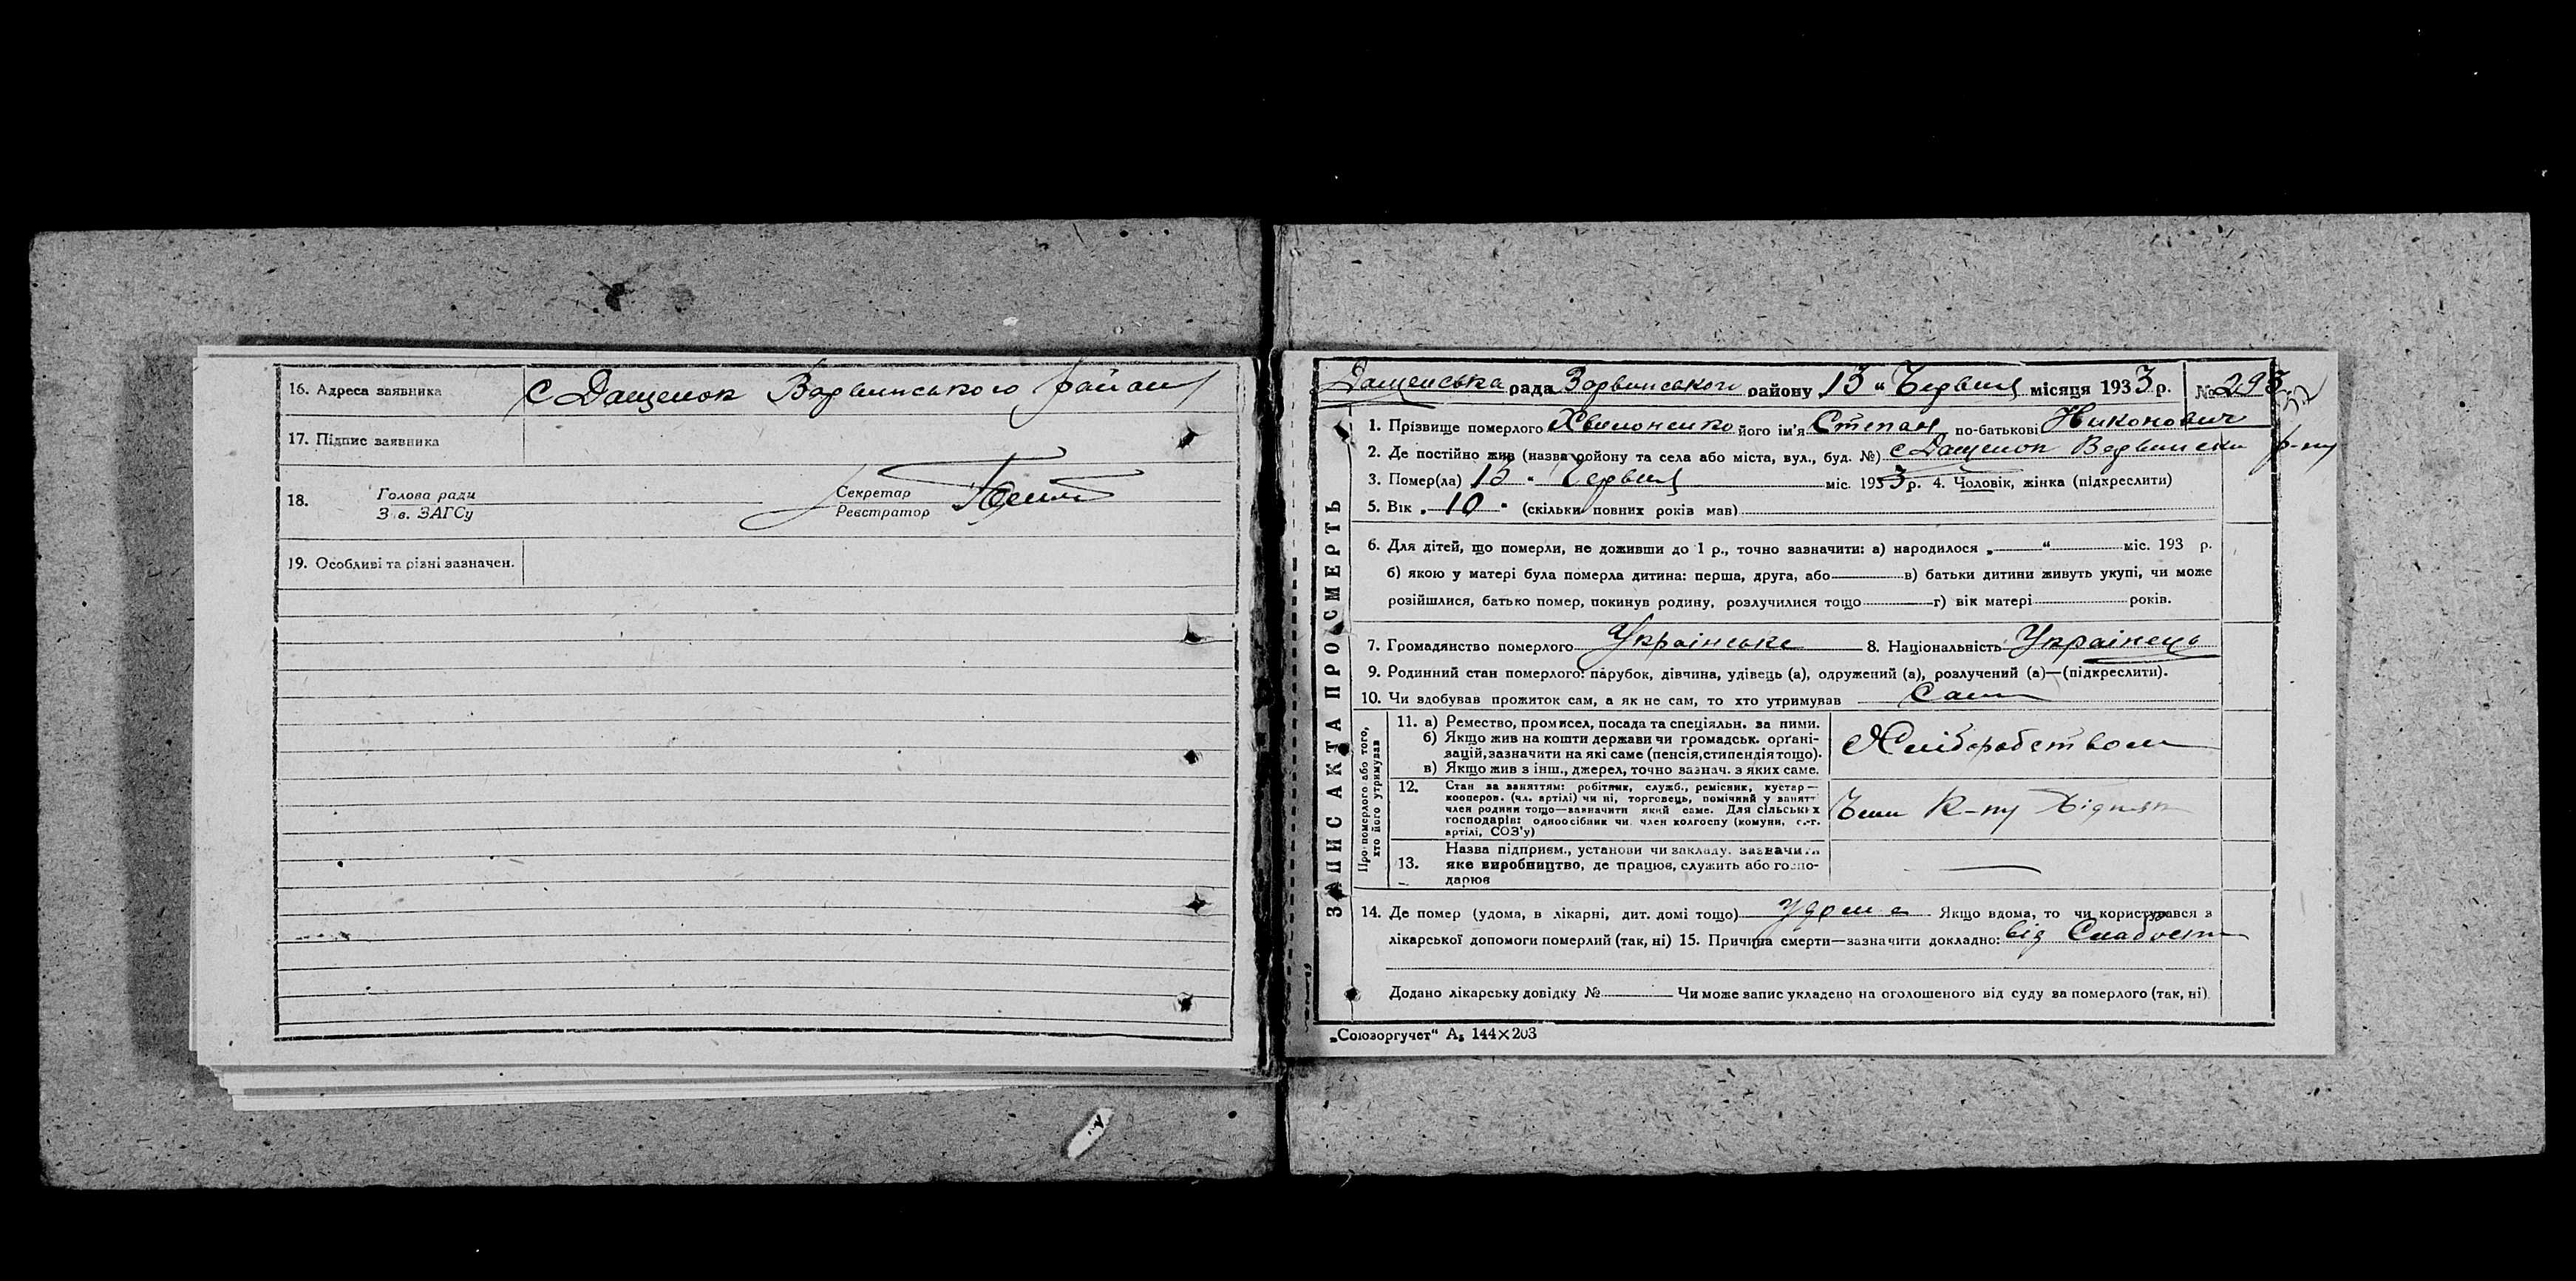 16. Адреса заявника с Дащенок Варвинського району
17. Підпис заявника
18. Голова ради
Зав. ЗАГСу
Секретар
Реєстратор
19. Особливі та різні зазначен.
ЗАПИС АКТА ПРО СМЕРТЬ
Дащенська рада Варвинського району 13 „ Червня місяця 1933 р. №
1. Прізвище померлого його ім'я Степан по-батькові Никонович
2. Де постійно жив (назва району та села або міста, вул., буд. №) с Дащенок Варвинськ р-ну
3. Помер(ла) 13 " Червня міс. 1933 р. 4. Чоловік, жінка (підкреслити)
5. Вік „ 10 " (скільки повних років мав)
6. Для дітей, що померли, не доживши до 1 р., точно зазначити: а) народилося „ “ міс. 193 р.
б) якою у матері була померла дитина: перша, друга, або в) батьки дитини живуть укупі, чи може
розійшлися, батько помер, покинув родину, розлучилися тощо г) вік матері років.
7. Громадянство померлого Українське 8. Національність Українець
9. Родинний стан померлого: парубок, дівчина, удівець (а), одружений (а), розлучений (а)—(підкреслити).
10. Чи здобував прожиток сам, а як не сам, то хто утримував Сам
Про померлого або того,
хто його утримував
11. а) Ремество, промисел, посада та спеціяльн. за ними.
б) Якщо жив на кошти держави чи громадськ. орґані-
зацій, зазначити на які саме (пенсія, стипендія тощо).
в) Якщо жив з інш., джерел, точно зазнач. з яких саме.
Хліборобством
12. Стан за заняттям: робітник, служб., ремісник, кустар—
кооперов. (чл. артілі) чи ні, торговець, помічний у занят
член родини тощо—зазначити який саме. Для сільських
господарів: одноосібник чи член колгоспу (комуни, с.-г.
артілі, СОЗ'у)
Член К-пу
13. Назва підприєм., установи чи закладу. зазначити
яке виробництво, де працює, служить або госпо-
дарює
14. Де помер (удома, в лікарні, дит. домі тощо) удома Якщо вдома, то чи користувався з
лікарської допомоги померлий (так, ні) 15. Причина смерти—зазначити докладно: від Слабости
Додано лікарську довідку № Чи може запис укладено на оголошеного від суду за померлого (так, ні)
„Союзоргучет“ А5 144×203